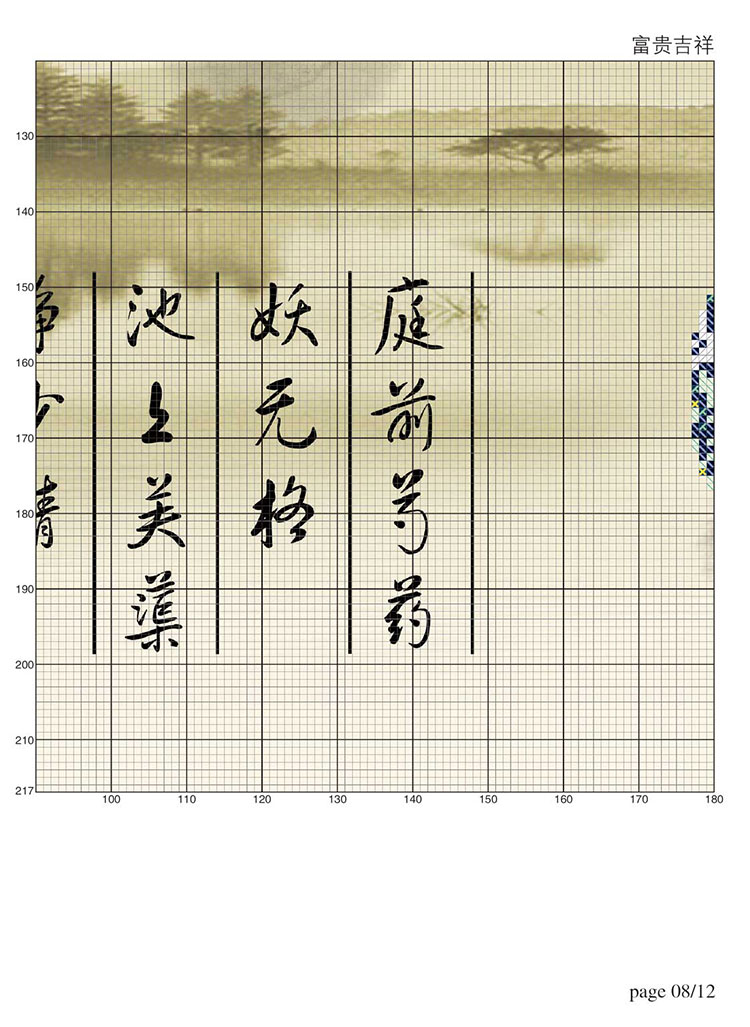 富贵吉祥
130
140
150
160
170
180
190
200
210
217
庭前芍药
妖无格
池上芙蕖
100 110 120 130 140 150 160 170 180
page 08/12